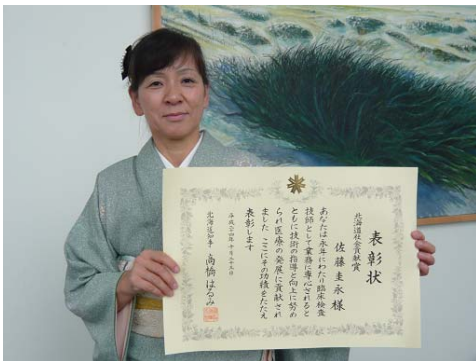 表彰状
北海道社会貢献賞
佐藤圭永様
あなたは永年にわたり臨床検査
技師として業務に専心されると
ともに技術の指導と向上に努め
られ医療の発展に貢献され
ました ここにその功績をたたえ
表彰します
平成二四年十月二五日
北海道知事 高橋はるみ